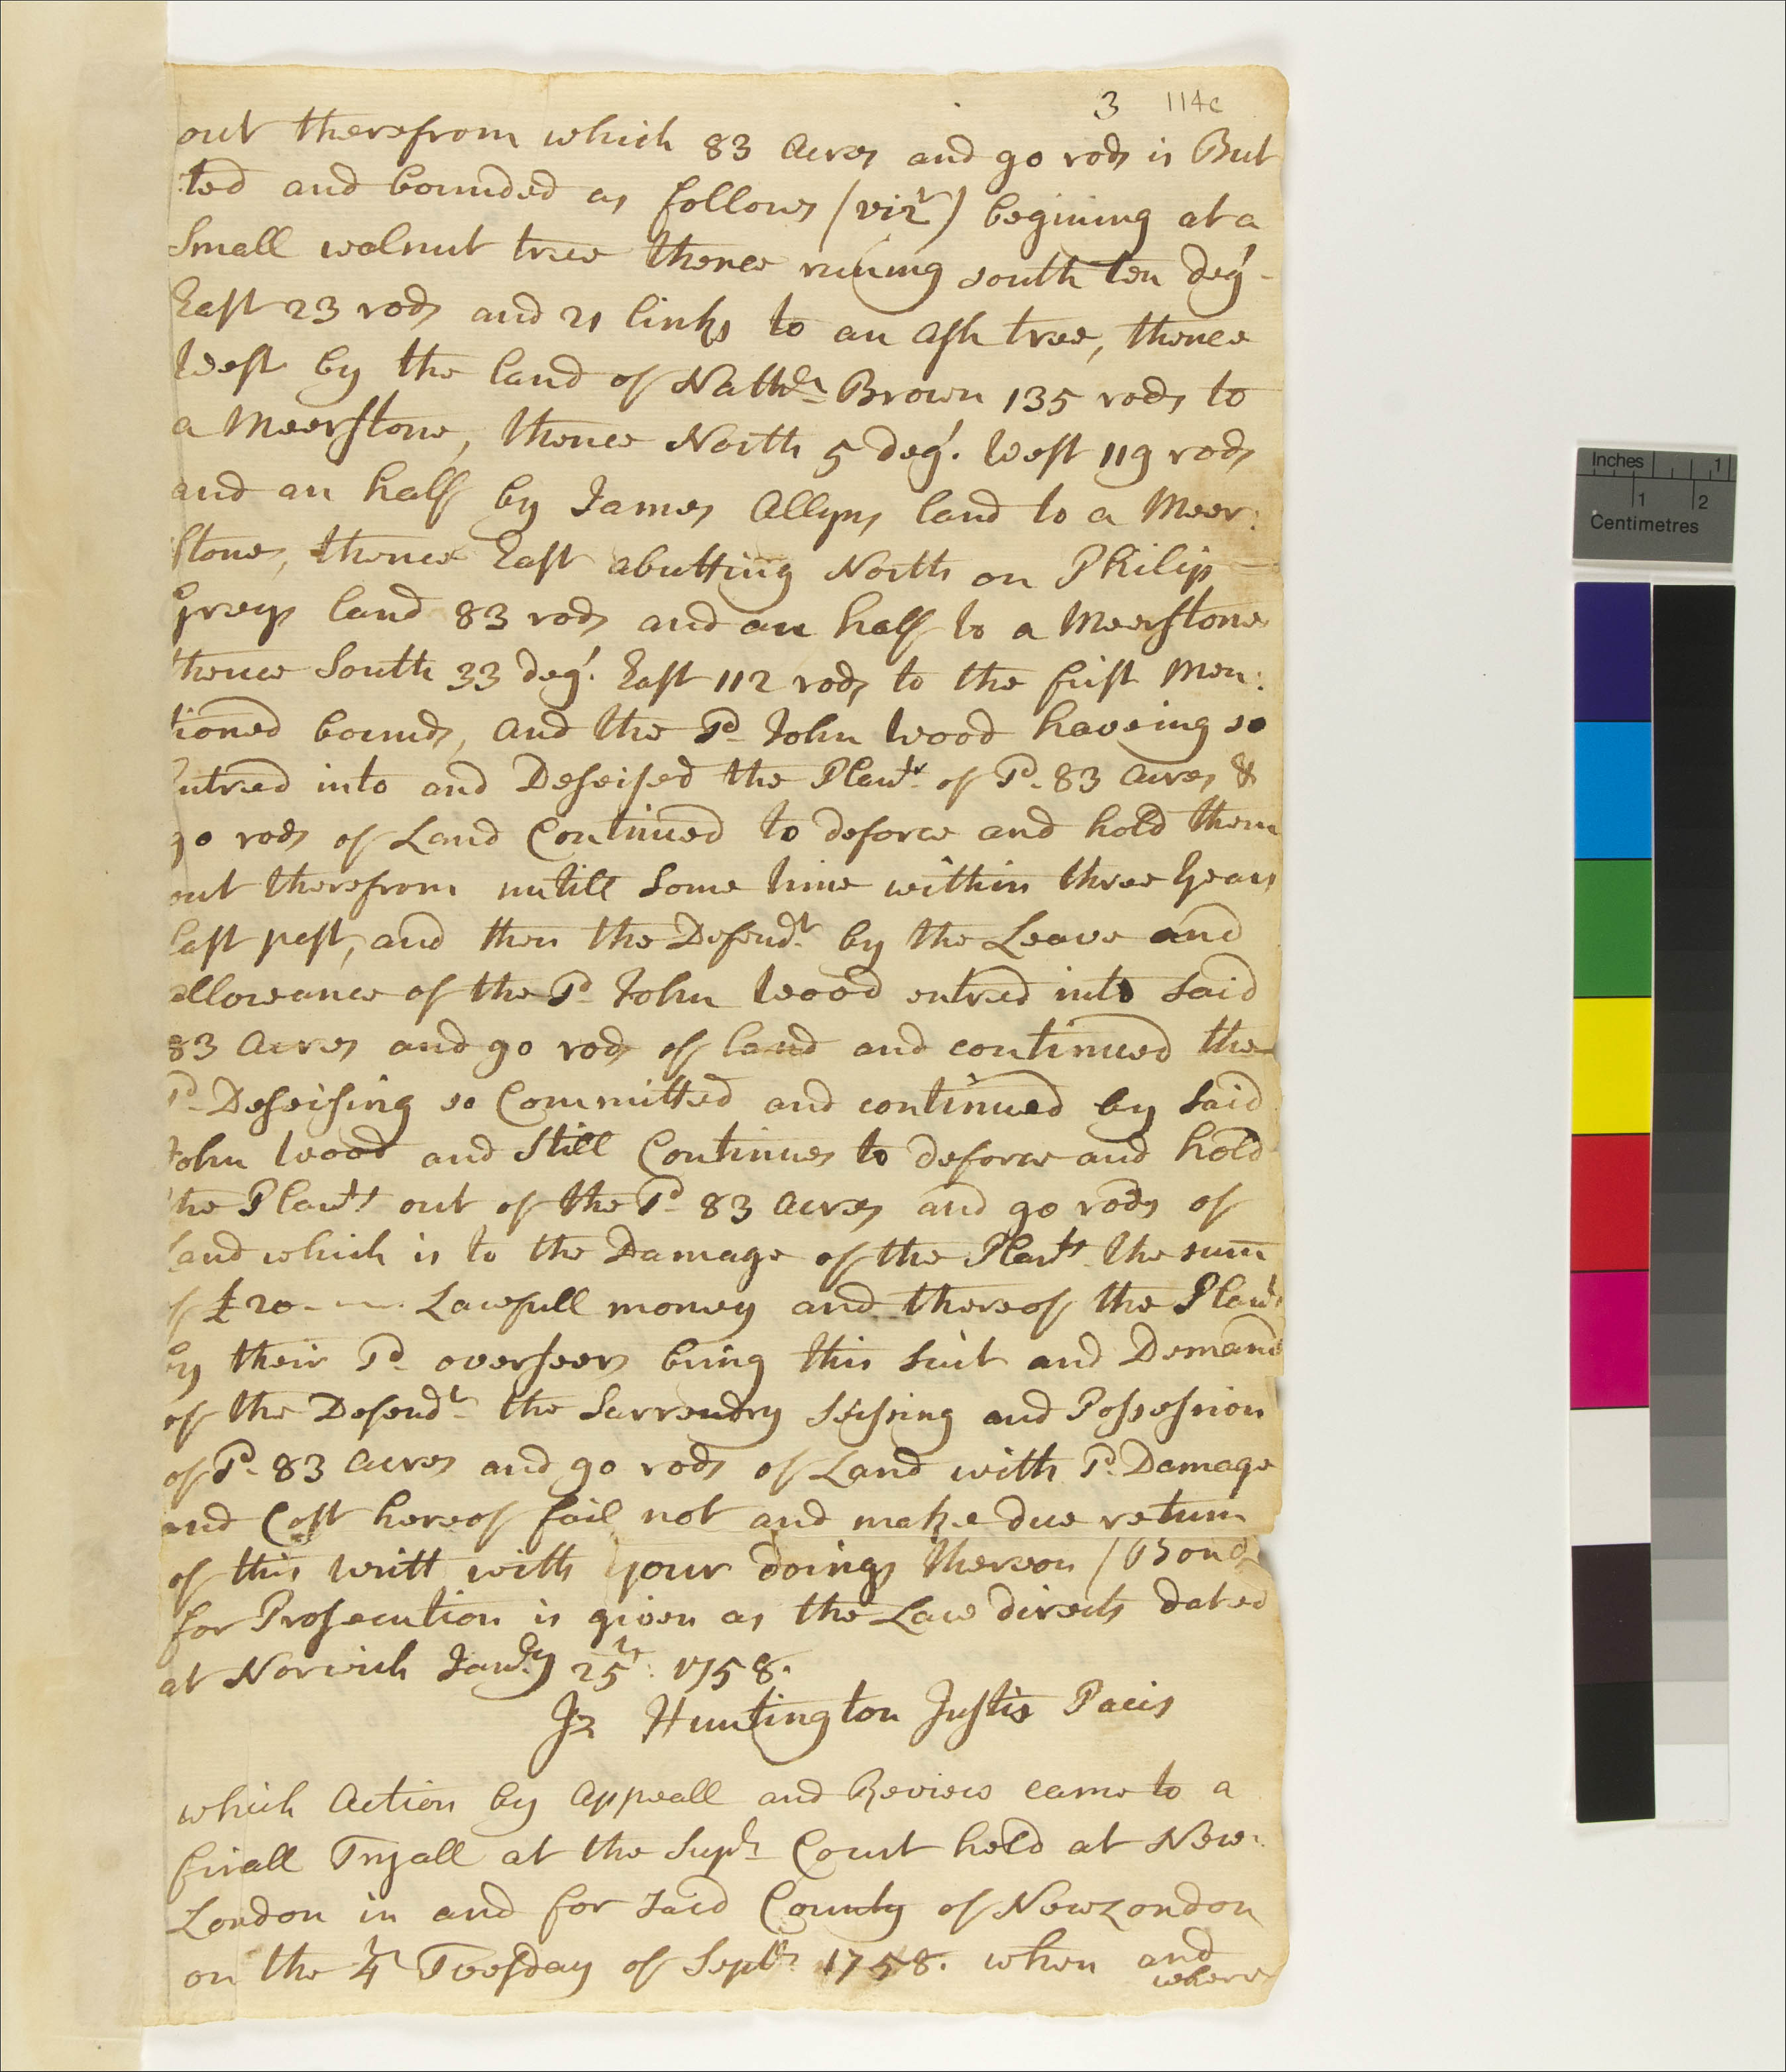 3 114c
out therefrom which 83 Acres and 90 rods is But
ted and bounded as follows (vizt) begining at a
Small walnut tree thence runing south ten deg.
East 23 rods and 21 links to an ash tree, thence
West by the land of Nathll Brown 135 rods to
a Meerstone, thence North 5 deg. West 119 rods
and an half by James Allyns land to a Meer:
stone, thence East abutting North on Philip
Grays land 83 rods and an half to a Meerstone
thence South 33 deg. East 112 rods to the first Men:
tioned bounds, and the Sd John Wood haveing so
Entred into and Desseised the Plants of Sd 83 Acres &
90 rods of Land Continued to deforce and hold them
out therefrom untill Some time within three Years
last past, and then the Defendt by the Leave and
allowance of the Sd John Wood entred into Said
83 Acres and 90 rods of land and continued the
Sd Desseising so Committed and continued by Said
John Wood and Still Continues to deforce and hold
the Plants out of the Sd 83 Acres and 90 rods of
Land which is to the Damage of the Plants the sum
of £20 Lawfull money and thereof the Plants
by their Sd overseers bring this Suit and Demand
of the Defendt the Surrendry Seising and Possession
of Sd 83 Acres and 90 rods of Land with Sd Damage
and Cost hereof fail not and make due return
of this Writt with your doings thereon / Bond
for Prosecution is given as the Law directs dated
at Norwich Janry 25th 1758.
Jz Huntington Justis Pacis
which Action by Appeall and Review came to a
finall Tryall at the Supr Court held at New:
London in and for said County of New London
on the 4th Tuesday of Septr 1758. when and
where